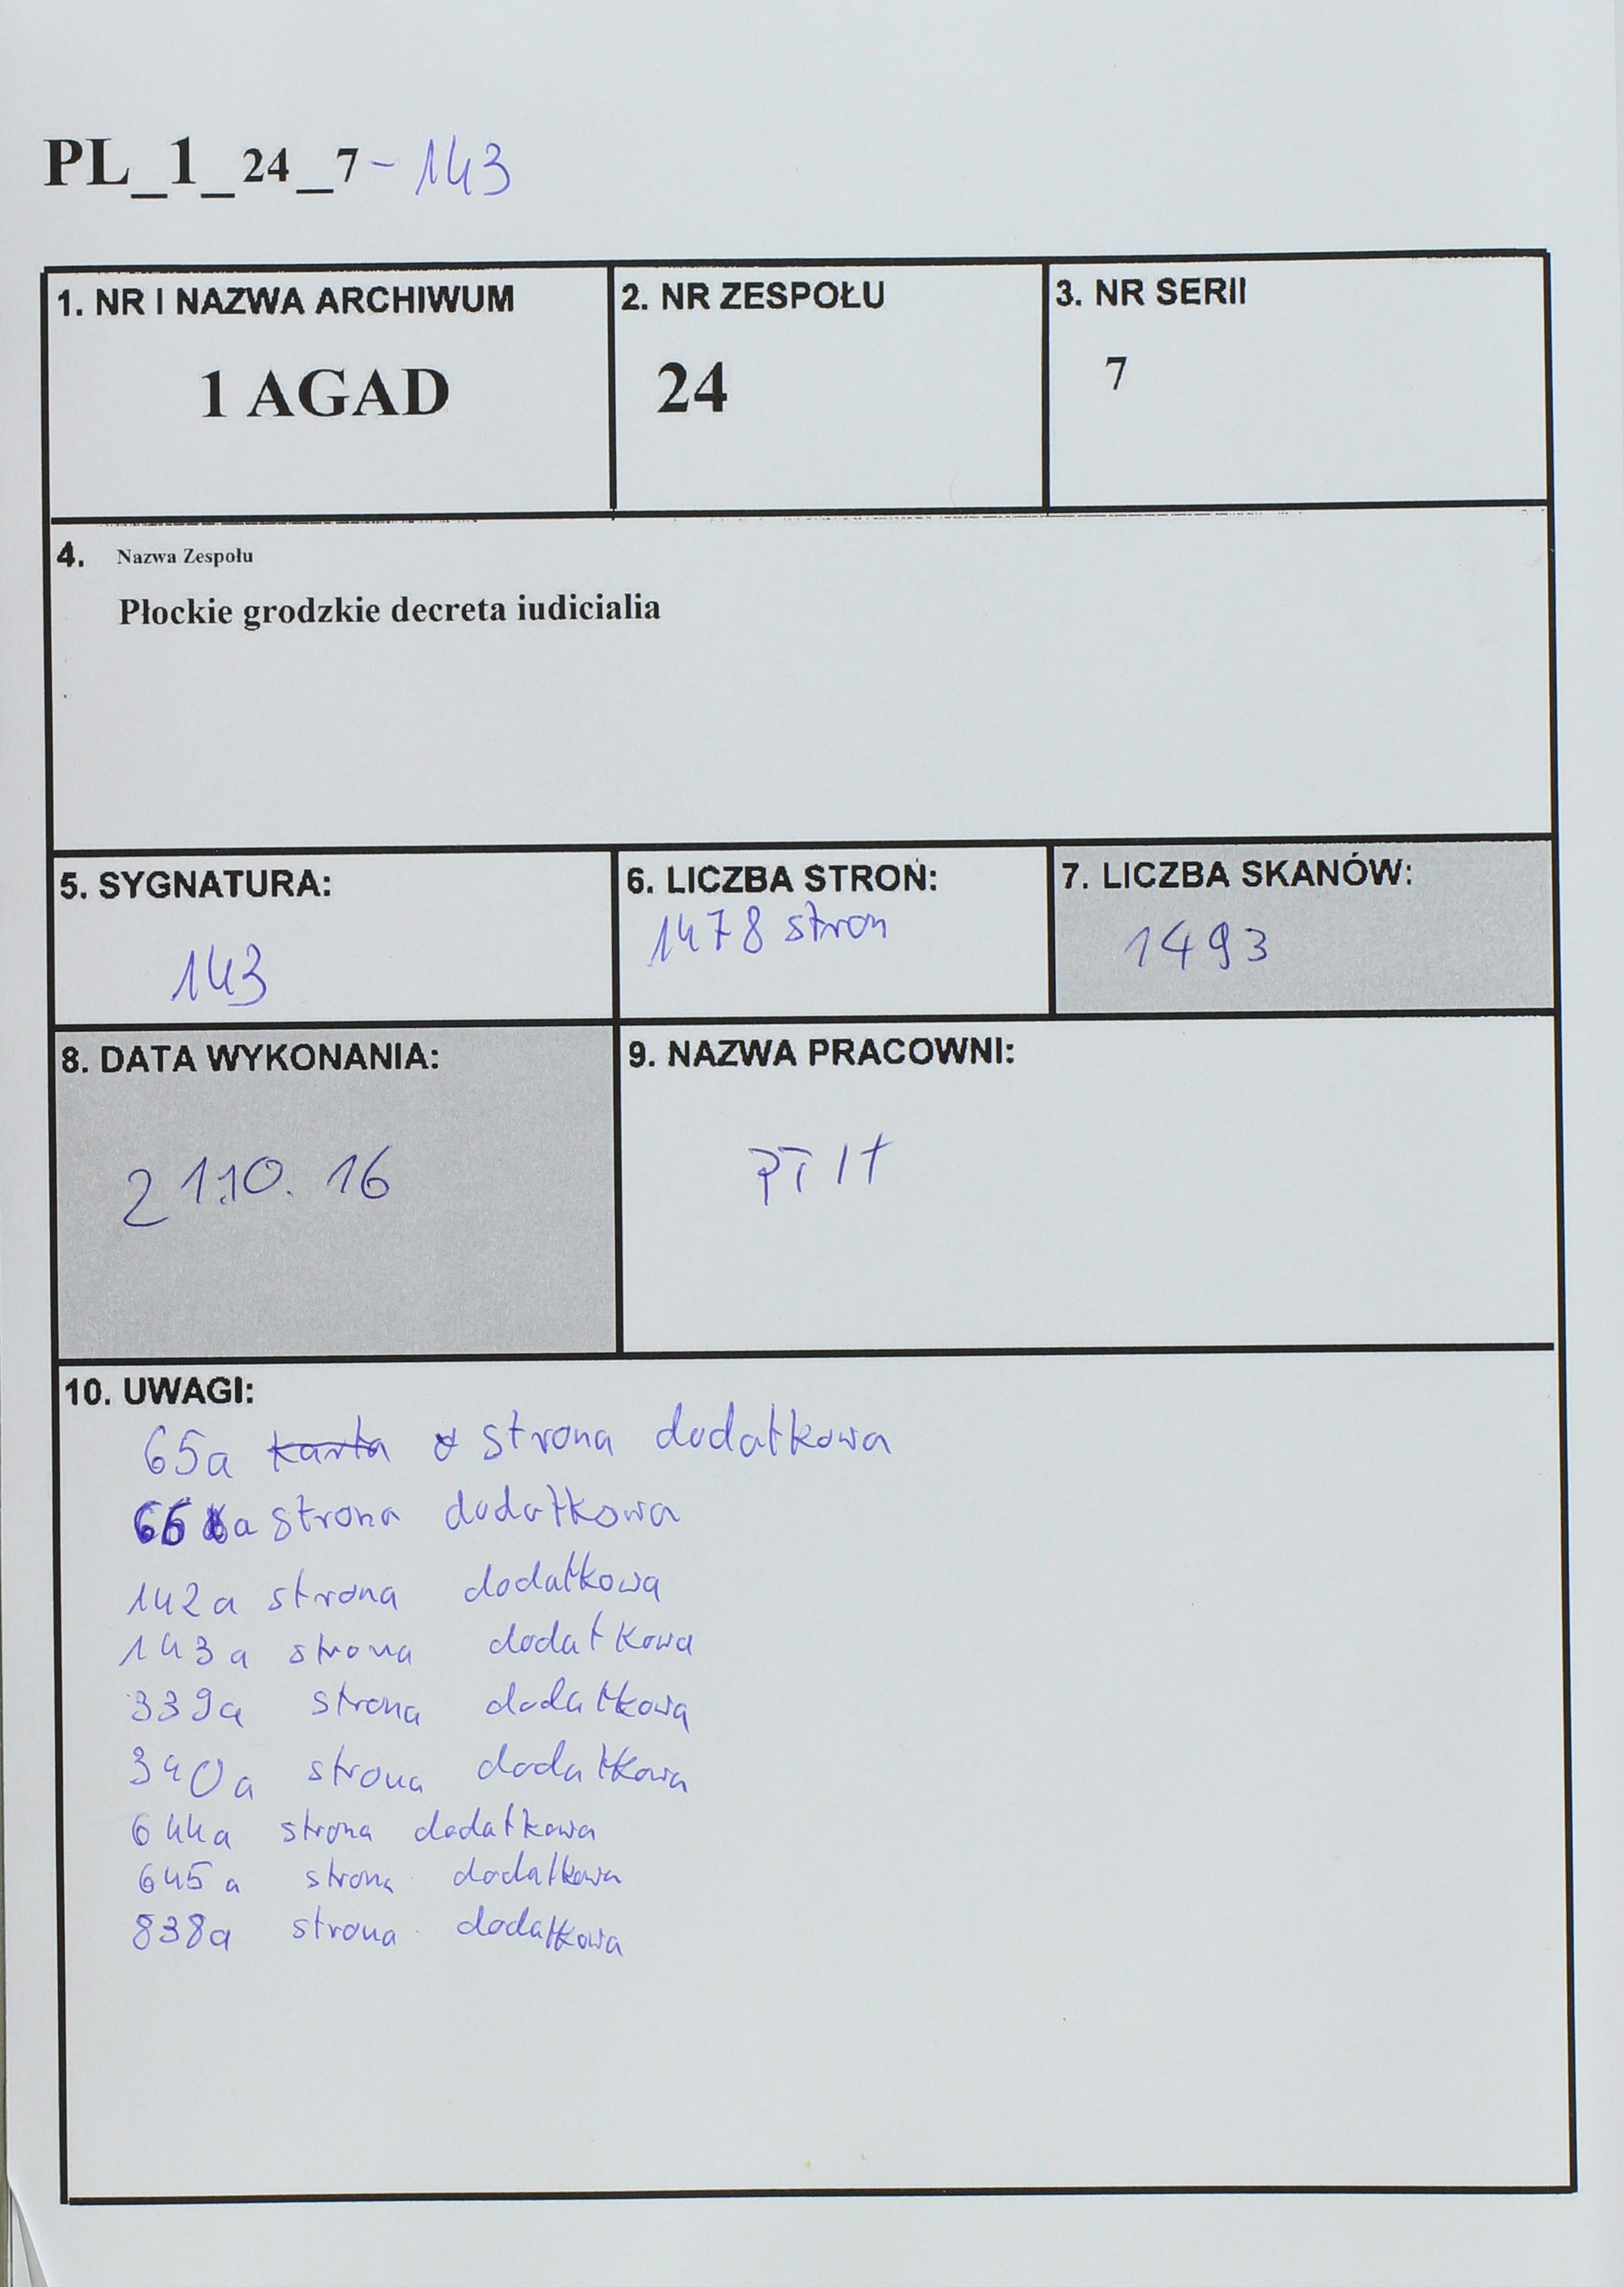 PL_1_24_7-143
1. NR I NAZWA ARCHIWUM
1 AGAD
2. NR ZESPOŁU
24
3. NR SERII
7
4. Nazwa Zespołu
Płockie grodzkie decreta iudicialia
5. SYGNATURA:
143
6. LICZBA STRON:
1478 stron
7. LICZBA SKANÓW:
1493
8. DATA WYKONANIA:
21.10.16
9. NAZWA PRACOWNI:
10. UWAGI:
65a karta strona dodatkowa
66a strona dodatkowa
142a strona dodatkowa
143a strona dodatkowa
339a strona dodatkowa
340a strona dodatkowa
644a strona dodatkowa
645a strona dodatkowa
838a strona dodatkowa